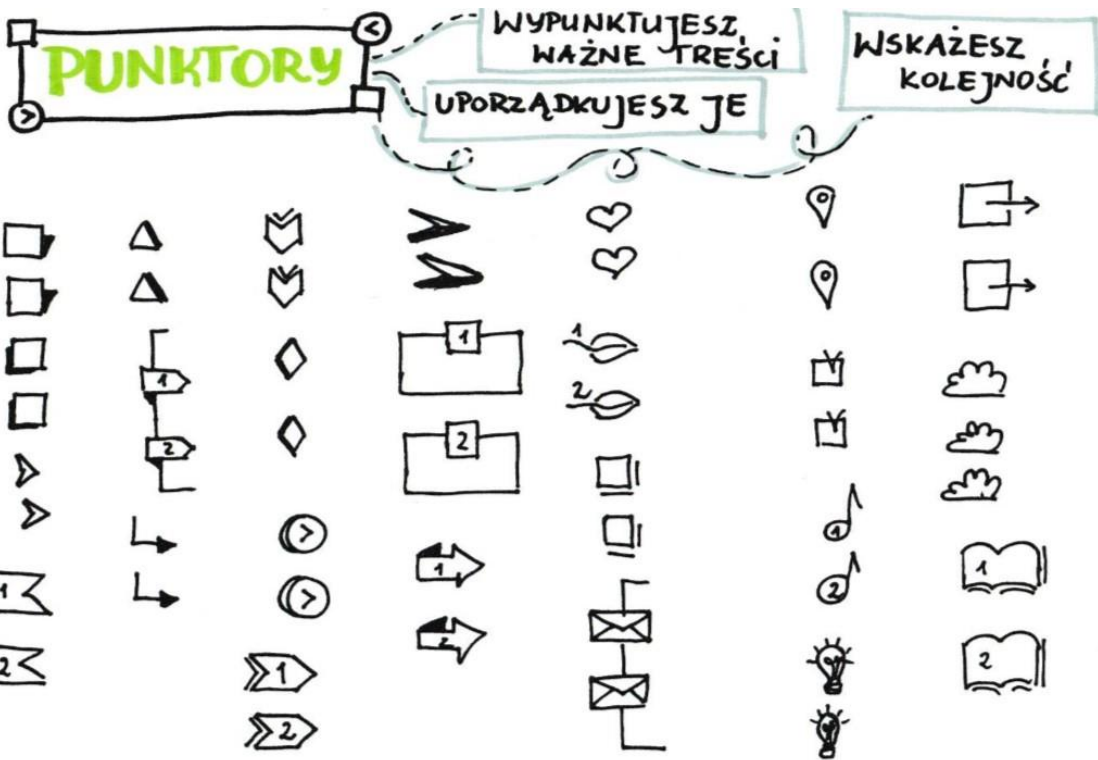 PUNKTORY
WYPUNKTUJESZ
WAŻNE TREŚCI
UPORZĄDKUJESZ JE
WSKAŻESZ
KOLEJNOŚĆ
1
2
1
2
1
2
1
2
1
2
1
2
1
2
1
2